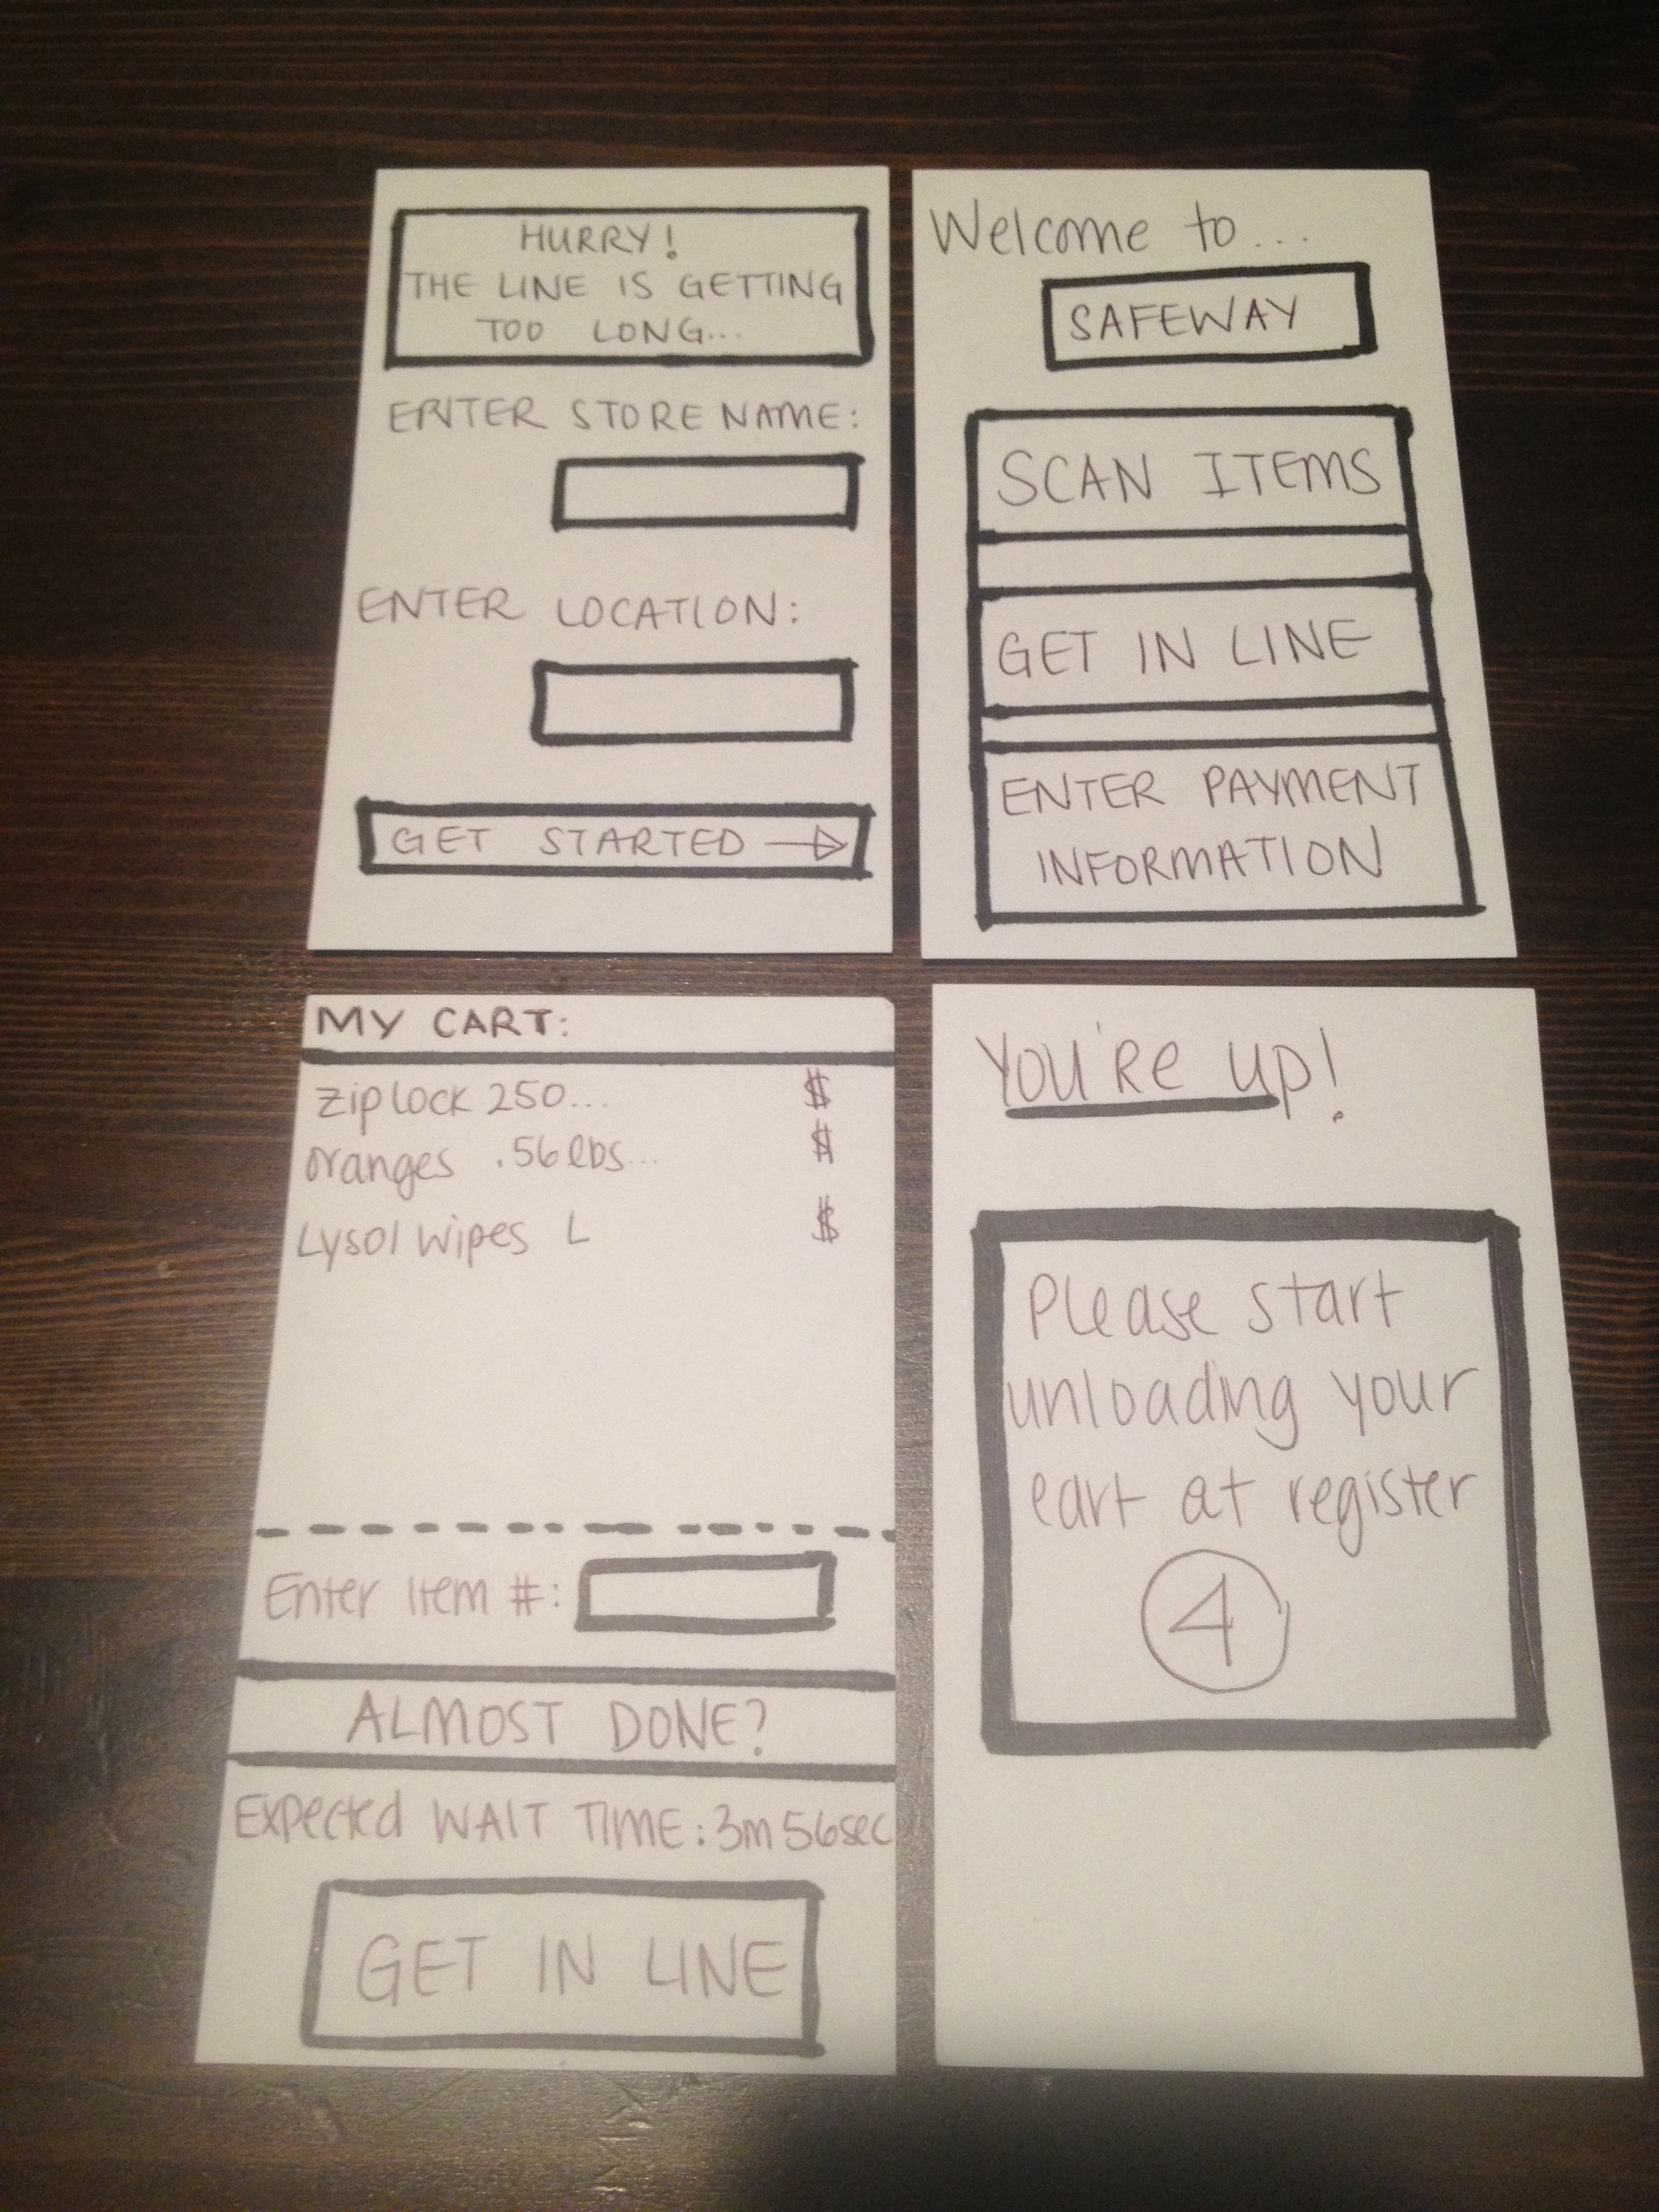 HURRY!
THE LINE IS GETTING
TOO LONG...
ENTER STORE NAME:
ENTER LOCATION:
GET STARTED
Welcome to...
SAFEWAY
SCAN ITEMS
GET IN LINE
ENTER PAYMENT
INFORMATION
MY CART:
Ziplock 250... $
oranges .56lbs... $
Lysol wipes L $
Enter Item #:
ALMOST DONE?
Expected WAIT TIME: 3m 56sec
GET IN LINE
You're up!
Please start
unloading your
cart at register
4